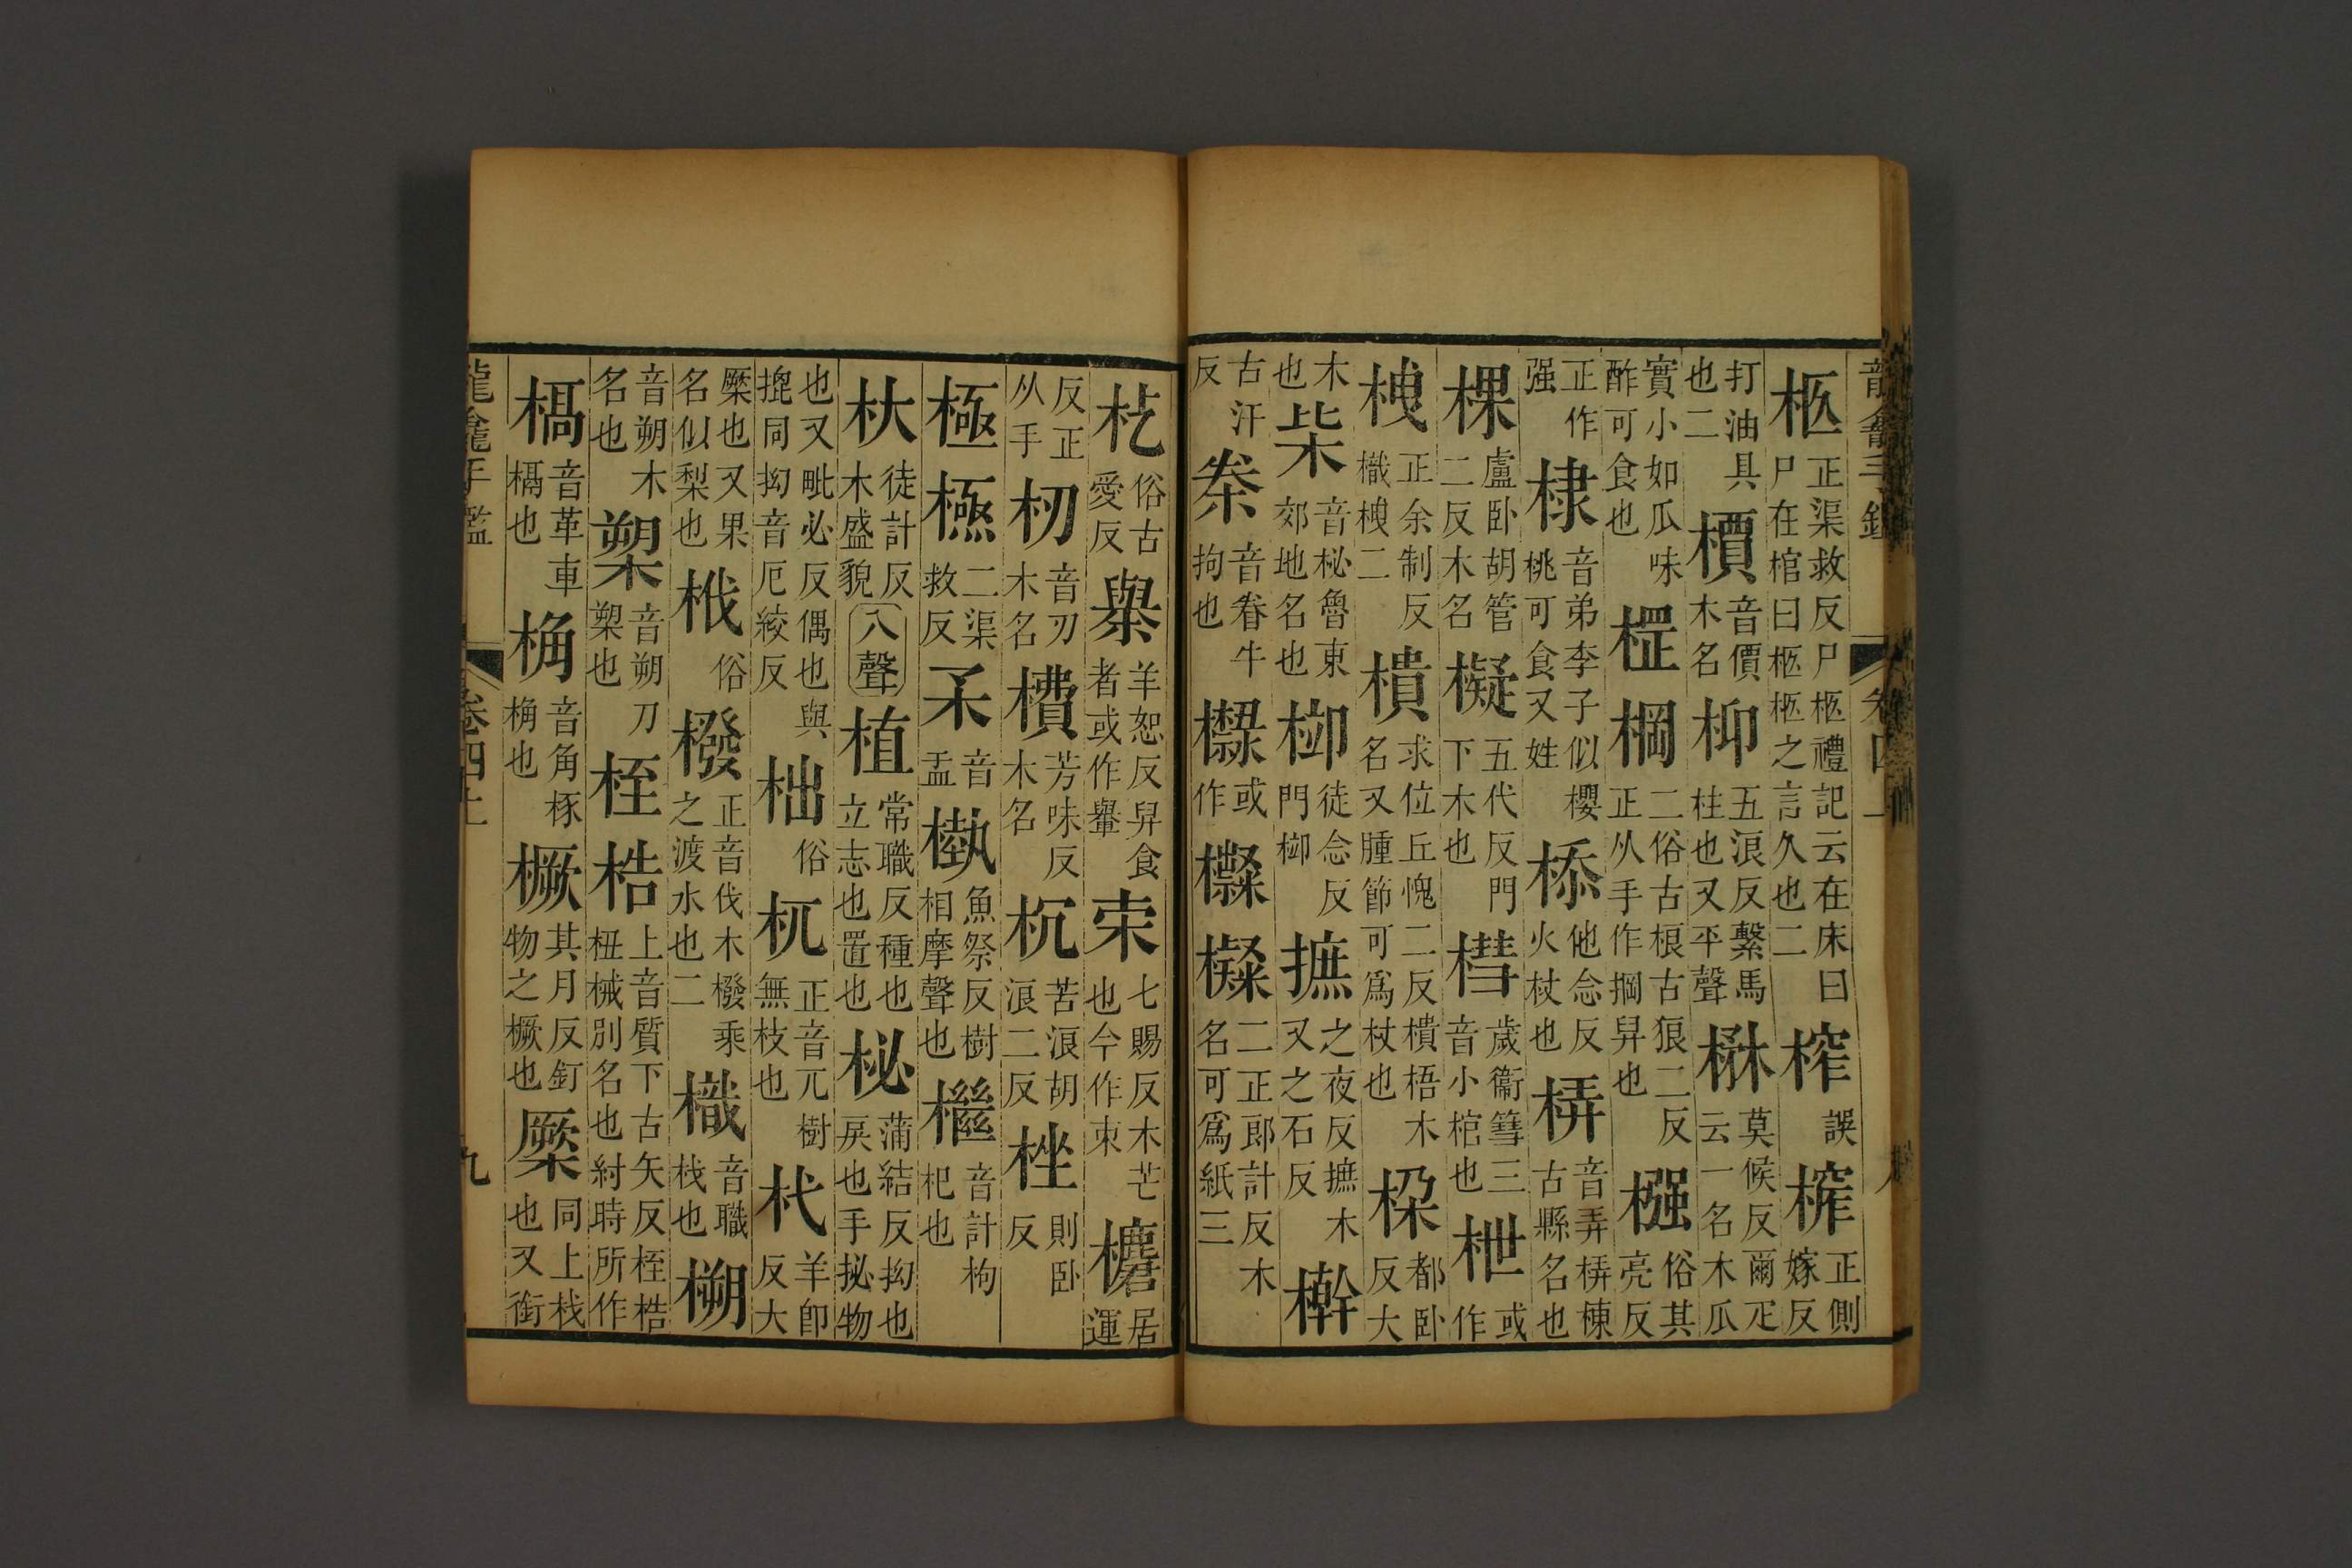 龍龕手鑑 卷四上
柩 正渠救反尸柩禮記云在床曰尸在棺曰柩柩之言久也二 榨 誤 榨 正側嫁反
打油具也二 檟 音價木名 枊 五浪反繫馬柱也又平聲 楙 莫候反爾疋云一名木瓜
實小如瓜味酢可食也 棡 二俗古根古狼二反正从手作掆舁也 俗其亮反
正作强 棣 音弟李子似櫻桃可食又姓 栝 他念反火杖也 梇 音弄梇棟古縣名也
棵 盧卧胡管二反木名 檥 五代反門下木也 槥 歲衞篲三音小棺也 枻 或作
栧 正余制反檝栧二 樻 求位丘愧二反樻梧木名又腫節可爲杖也 桗 都卧反大
木也 柴 音秘魯東郊地名也 徒念反門 樜 之夜反樜木又之石反 檊
古汗反 桊 音眷牛拘也 或作 二正郎計反木名可爲紙三
杚 俗古愛反 羊恕反舁食者或作轝 朿 七賜反木芒也今作朿 居運
反正从手 杒 音刃木名 櫠 芳味反木名 杭 苦浪胡浪二反 桽 則卧反
極 二渠救反 音盂 槸 魚祭反樹相摩聲也 檵 音計枸杞也
杕 徒計反木盛貌 入聲 植 常職反種也立志也置也 柲 蒲結反拗也戾也手㧙物
也又毗必反偶也與㨽同拗音厄絞反 柮 俗 杌 正音兀樹無枝也 杙 羊卽反大
橜也又果名似梨也 栰 俗 橃 正音伐木橃乘之渡水也二 樴 音職栈也 槊
音朔木名也 槊 音朔刀槊也 桎 梏 上音質下古矢反桎梏杻械別名也紂時所作
槅 音革車槅也 桷 音角椓桷也 橛 其月反釘物之橛也 橜 同上栈也又銜
龍龕手鑑 卷四上 九